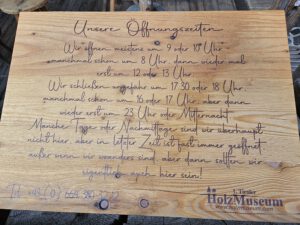 Unsere Öffnungszeiten
Wir öffnen meistens um 9 oder 10 Uhr,
manchmal schon um 8 Uhr, dann wieder mal
erst um 12 oder 13 Uhr.
Wir schließen ungefähr um 17:30 oder 18 Uhr,
manchmal schon um 16 oder 17 Uhr, aber dann
wieder erst um 23 Uhr oder Mitternacht.
Manche Tage oder Nachmittage sind wir überhaupt
nicht hier, aber in letzter Zeit ist fast immer geöffnet,
außer wenn wir woanders sind, aber dann sollten wir
eigentlich auch hier sein!
Tel. +43 (0) 664
1. Tiroler
HolzMuseum
www.holzmuseum.com